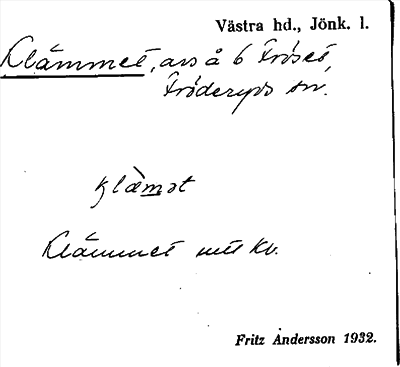 Västra hd., Jönk. l.
Klämmet, avs å 6 Fröset,
Fröderyds sn.
klæ̀mət
Klämmet mtl Kv.
Fritz Andersson 1932.